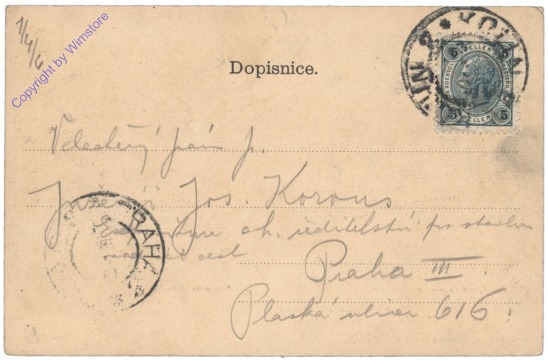 1/4/6
Copyright by Wimstore
Dopisnice.
KOLÍN
5 HELLER 5
Velectěný pán p.
Jos. Korous
ředitelství pro stavbu
cest
Praha III
Plaská ulice 616.
PRAHA